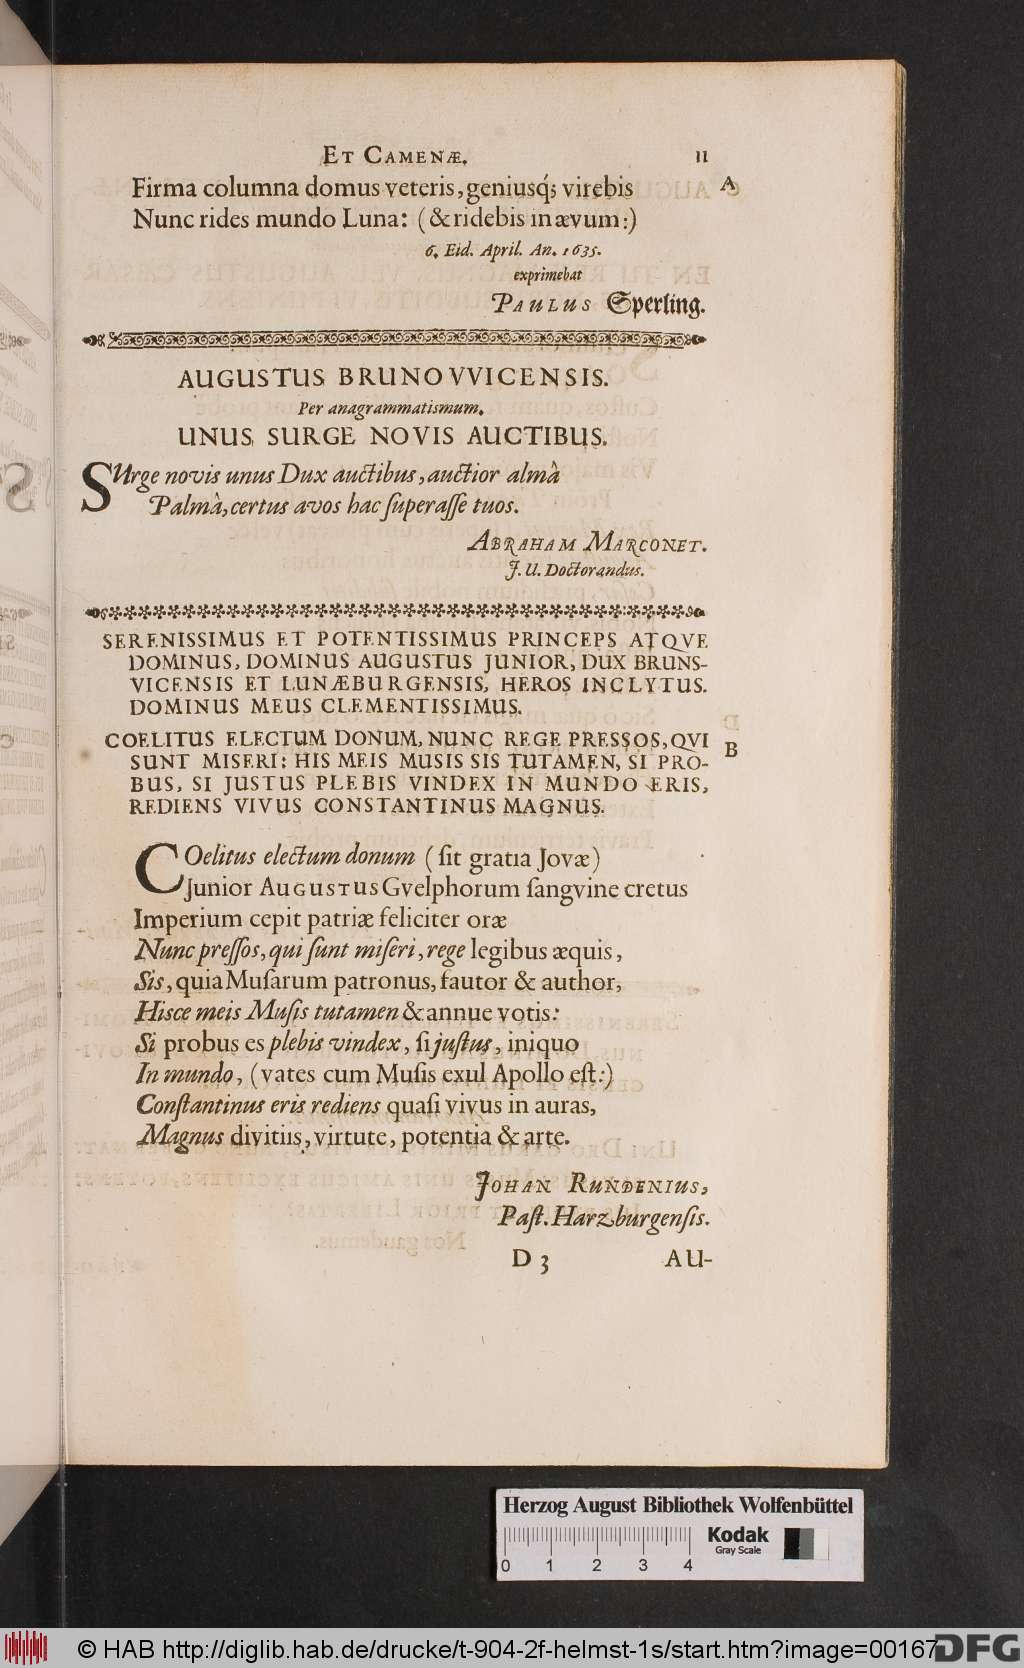 ET CAMENÆ. 11
Firma columna domus veteris, geniusq́; virebis A
Nunc rides mundo Luna: (& ridebis in ævum:)
6. Eid. April. An. 1635.
exprimebat
PAULUS Sperling.
AUGUSTUS BRUNOVVICENSIS.
Per anagrammatismum.
UNUS SURGE NOVIS AUCTIBUS.
SUrge novis unus Dux auctibus, auctior almâ
Palmâ, certus avos hac ſuperaſſe tuos.
ABRAHAM MARCONET.
J. U. Doctorandus.
SERENISSIMUS ET POTENTISSIMUS PRINCEPS ATQVE
DOMINUS, DOMINUS AUGUSTUS JUNIOR, DUX BRUNS-
VICENSIS ET LUNÆBURGENSIS, HEROS INCLYTUS.
DOMINUS MEUS CLEMENTISSIMUS.
COELITUS ELECTUM DONUM, NUNC REGE PRESSOS, QVI
SUNT MISERI: HIS MEIS MUSIS SIS TUTAMEN, SI PRO- B
BUS, SI JUSTUS PLEBIS VINDEX IN MUNDO ERIS,
REDIENS VIVUS CONSTANTINUS MAGNUS.
COelitus electum donum (ſit gratia Jovæ)
Junior AUGUSTUS Gvelphorum ſangvine cretus
Imperium cepit patriæ feliciter oræ
Nunc preſſos, qui ſunt miſeri, rege legibus æquis,
Sis, quia Muſarum patronus, fautor & author,
Hisce meis Muſis tutamen & annue votis:
Si probus es plebis vindex, ſi juſtus, iniquo
In mundo, (vates cum Muſis exul Apollo eſt:)
Conſtantinus eris rediens quaſi vivus in auras,
Magnus divitiis, virtute, potentia & arte.
JOHAN RUNDENIUS,
Paſt. Harzburgenſis.
D 3 AU-
Herzog August Bibliothek Wolfenbüttel
0 1 2 3 4 Kodak
Gray Scale
© HAB http://diglib.hab.de/drucke/t-904-2f-helmst-1s/start.htm?image=00167
DFG